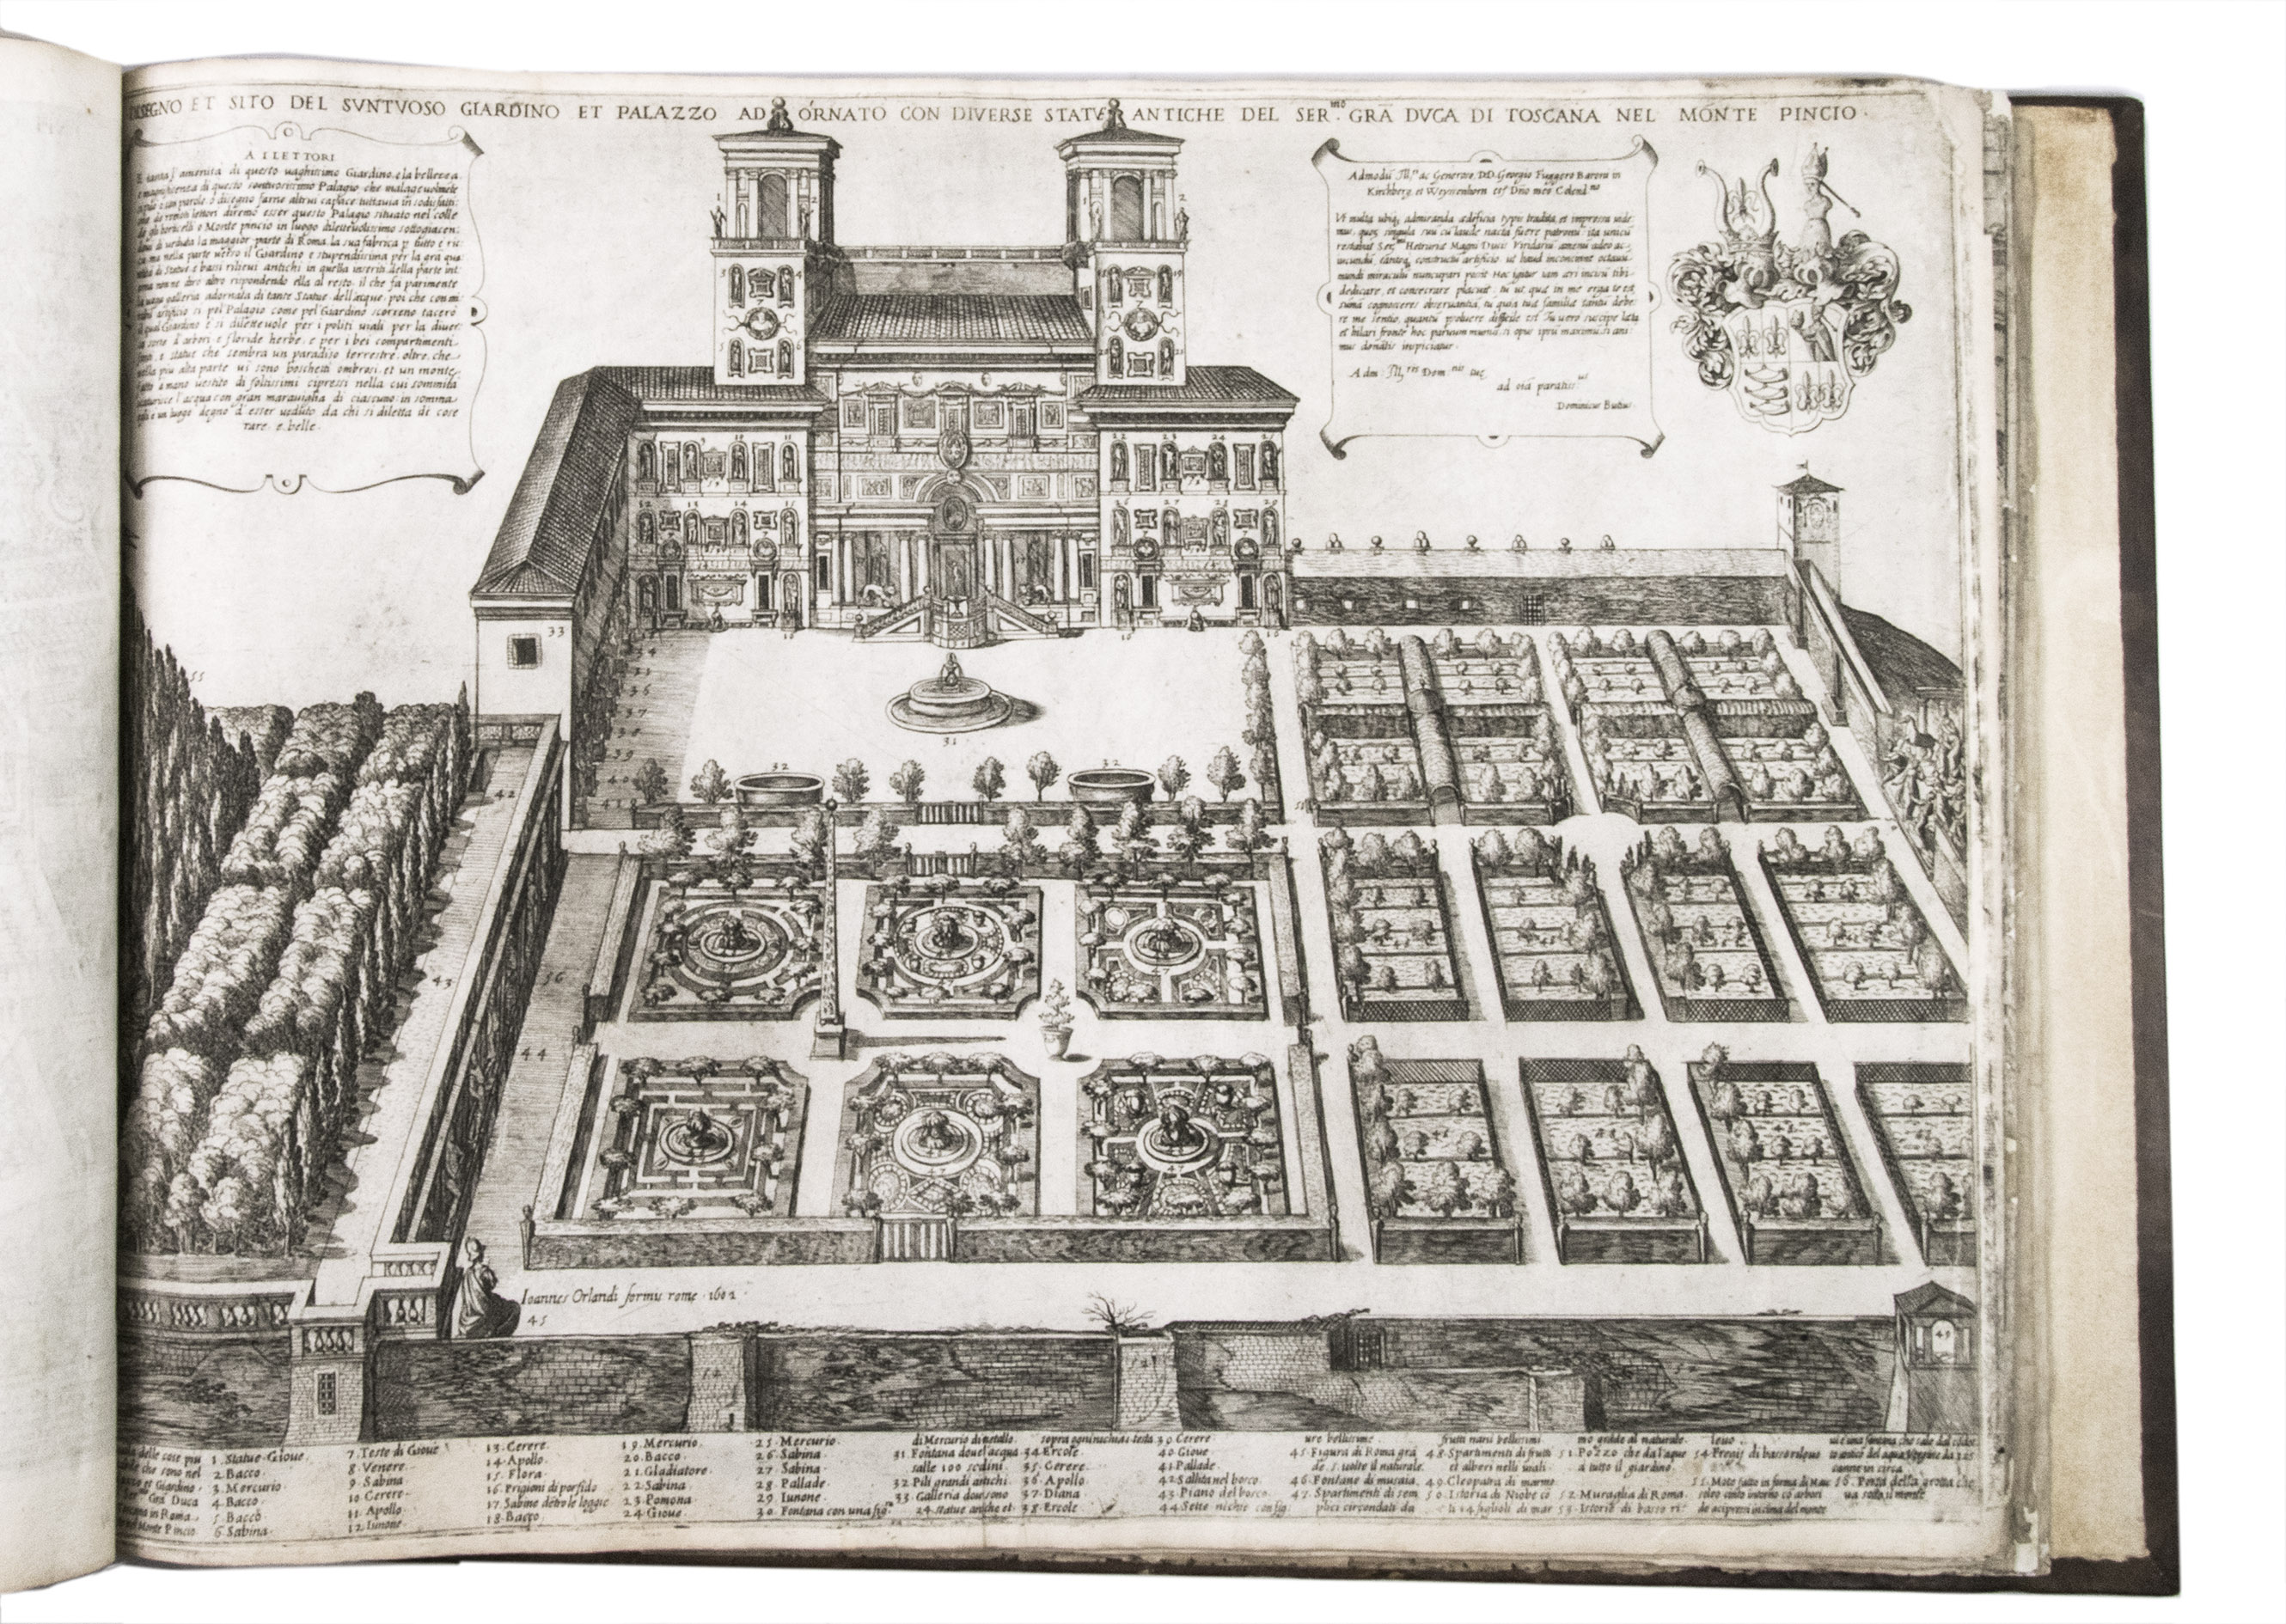 DISEGNO ET SITO DEL SVNTVOSO GIARDINO ET PALAZZO AD ORNATO CON DIVERSE STATVE ANTICHE DEL SER.mo GRÃ DVCA DI TOSCANA NEL MONTE PINCIO.
A I LETTORI
tanta l'amenita di questo uaghissimo Giardino, e la bellezza
magnificenza di questo sontuosissimo Palagio che malageuolmēte
con parole ò disegno farne altrui capace: tuttauia in sodisfatti:
de remoti lettori diremo esser questo Palagio situato nel colle
gli horticelli e Monte pincio in luogo diletteuolissimo sottogiacen:
di ueduta la maggior parte di Roma. la sua fabrica p tutto e ric
ma nella parte uerso il Giardino e stupendissima per la grā qua
di Statue e bassi rilieui antichi in quella inseriti. della parte int
non ne dirò altro rispondendo ella al resto. il che fà parimente
uaga galleria adornata di tante Statue. dell'acque. poi che con mi
artificio si pel Palagio come pel Giardino scorreno tacerò
qual Giardino è si diletteuole per i politi uiali per la diuer
sorte d'arbori e floride herbe, e per i bei compartimenti
e statue che sembra un paradiso terrestre. oltre, che
nella piu alta parte ui sono boschetti ombrosi, et un monte
fatto a mano uestito di foltissimi cipressi nella cui sommità
scaturisce l'acqua con gran marauiglia di ciascuno in somma
è un luogo degno d'esser ueduto da chi si diletta di cose
rare e belle.
Admodū Ill.ri ac Generoso D.D. Georgio Fuggero Baroni in
Kirchberg, et Weyssenhorn etc Dño meo Colend.mo
Vt multa ubiq; admiranda ædificia typis tradita, et impressa uide
mus, quoq; singula suū cū laude nacta fuere patronū: ita unicū
restabat Ser.mi Hetruriæ Magni Ducis Viridariū amenū adeo ac
iucundū, tantoq; constructū artificio, ut haud inconcinne octauū
mundi miraculū nuncupari possit. Hoc igitur iam æri incisū tibi
dedicare, et consecrare placuit, tū ut, qua in me erga te ea
summa cognosceres obseruantia, tū quia tuæ familiæ tantū debe
re me sentio, quantū soluere difficile est. Tu uero suscipe læta
et hilari fronte hoc paruum munus, si opus ipsū maximū si ani
mus donātis inspiciatur.
Adm: Ill.ris Dom.nis tuę
ad oīa paratiss.us
Dominicus Butius.
Ioannes Orlandi formis rome 1602
delle cose piu
che sono nel
et Giardino
Grā Duca
in Roma
Monte Pincio
1. Statue Gioue
2. Bacco
3. Mercurio
4. Bacco
5. Bacco
6. Sabina
7. Teste di Gioue
8. Venere
9. Sabina
10. Cerere
11. Apollo
12. Iunone
13. Cerere
14. Apollo
15. Flora
16. Prigioni di porfido
17. Sabine dētro le loggie
18. Bacco
19. Mercurio
20. Bacco
21. Gladiatore
22. Sabina
23. Pomona
24. Gioue
25. Mercurio
26. Sabina
27. Sabina
28. Pallade
29. Iunone
30. Fontana con una fig.ra
di Mercurio di metallo
31. Fontana doue l'acqua
salle 100 scalini
32. Pili grandi antichi
33. Galleria doue sono
24. statue antiche et
sopra ogni nichia 1. testa
34. Ercole
35. Cerere
36. Apollo
37. Diana
38. Ercole
39. Cerere
40. Gioue
41. Pallade
42. Sallita nel bosco
43. Piano del bosco
44. Sette nichie con fig.
ure bellissime
45. Figura di Roma grā
de 5. uolte il naturale
46. Fontane di musaia
47. Spartimenti di sem
plici circondati da
frutti nani bellissimi
48. Spartimenti di frutti
et alberi nelli uiali
49. Cleopatra di marmo
50. Istoria di Niobe cō
li 14 figlioli di mar
mo grādi al naturale
51. Pozzo che dà l'aque
à tutto il giardino
52. Muraglia di Roma
53. Istorie di basso ri:
leuo
54. Fregij di basso riliouo
55. Mōte fatto in forma di Mau
soleo cinto intorno cō arbori
de cipressi in cima del monte
ui è una fontana che sale dal
56. Porta della grotta che
ua sotto il monte